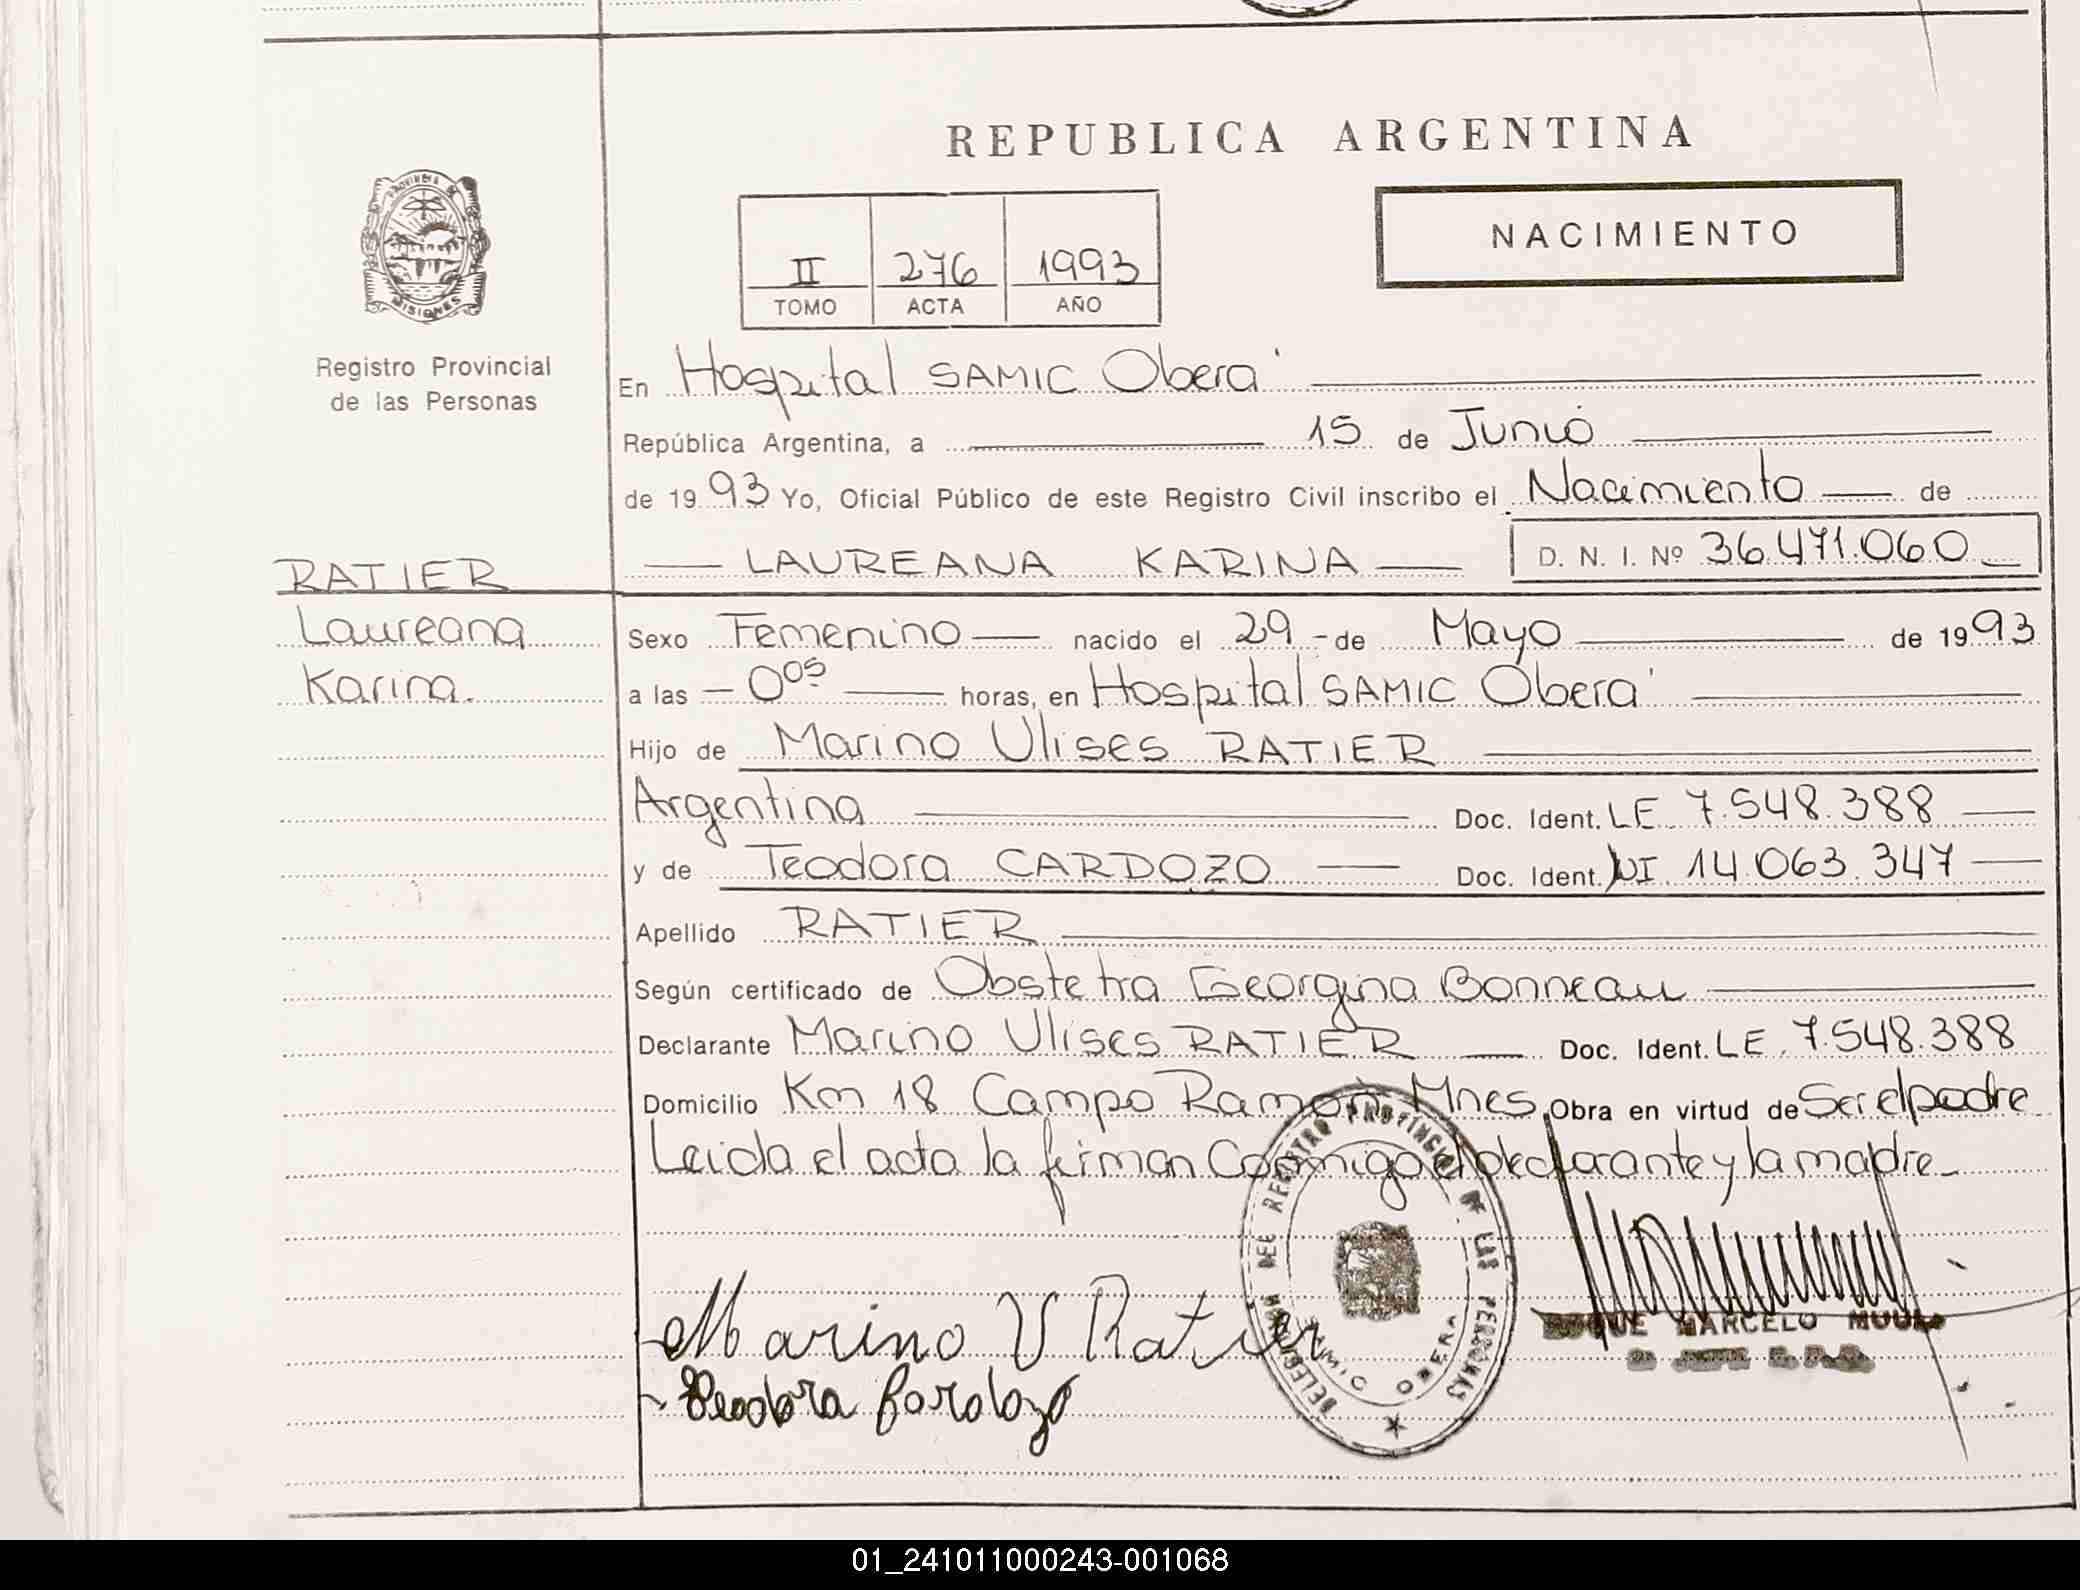 REPUBLICA ARGENTINA
PROVINCIA DE
MISIONES
Registro Provincial
de las Personas
NACIMIENTO
II 276 1993
TOMO ACTA AÑO
En Hospital SAMIC Oberá
República Argentina, a 15 de Junio
de 1993 Yo, Oficial Público de este Registro Civil inscribo el Nacimiento de
LAUREANA KARINA D. N. I. Nº 36.471.060
RATIER
Laureana
Karina.
Sexo Femenino nacido el 29 - de Mayo de 1993
a las 0 05 horas, en Hospital SAMIC Oberá
Hijo de Marino Ulises RATIER
Argentina Doc. Ident. LE 7.548.388
y de Teodora CARDOZO Doc. Ident. NI 14.063.347
Apellido RATIER
Según certificado de Obstetra Georgina Bonneau
Declarante Marino Ulises RATIER Doc. Ident. LE 7.548.388
Domicilio Km 18 Campo Ramón Mnes. Obra en virtud de Ser el padre
Leida el acta la firman Conmigo el declarante y la madre
DELEGACION DEL REGISTRO PROVINCIAL DE LAS PERSONAS
SAMIC OBERA
Marino U Ratier
Teodora Cardozo
ROQUE MARCELO
01_241011000243-001068